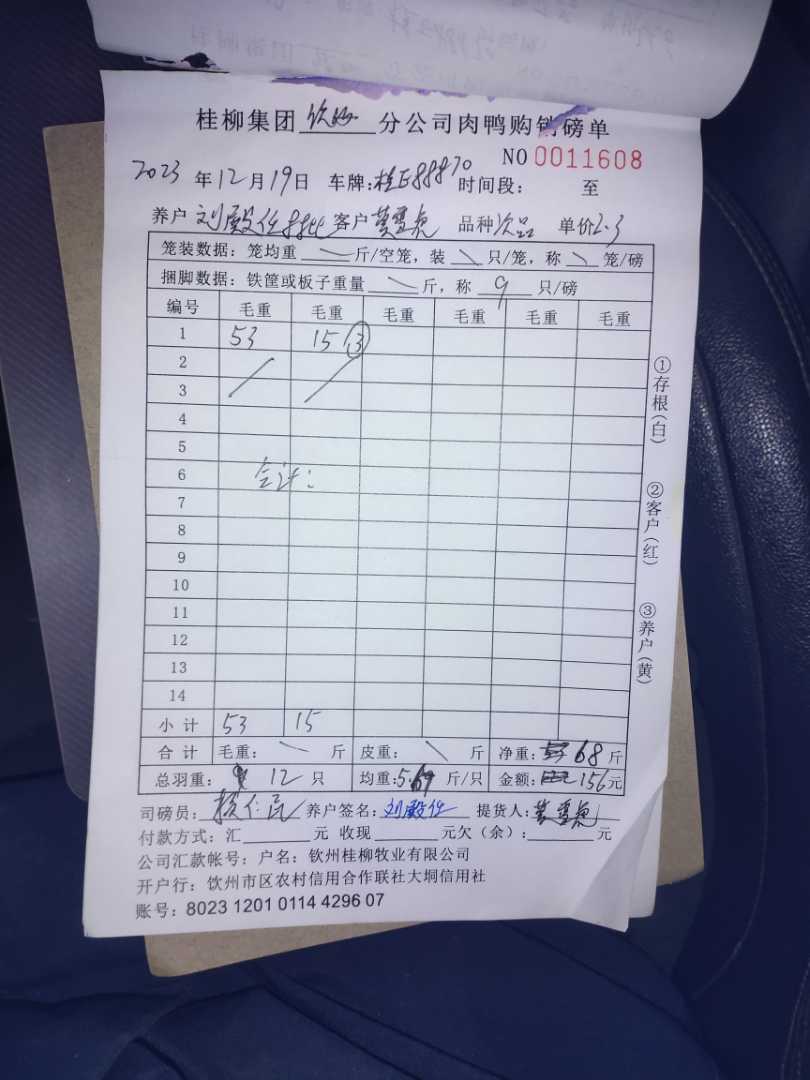 桂柳集团钦州分公司肉鸭购销磅单
NO 0011608
2023年12月19日 车牌:桂E88870 时间段: 至
养户 刘殿仕 客户 品种 次品 单价 2.3
笼装数据:笼均重 斤/空笼,装 只/笼,称 笼/磅
捆脚数据:铁筐或板子重量 斤,称 9 只/磅
编号 毛重 毛重 毛重 毛重 毛重 毛重
1 53 15 ③
2
3
4
5
6 合计:
7
8
9
10
11
12
13
14
小计 53 15
合计 毛重: 斤 皮重: 斤 净重: 68 斤
总羽重: 12 只 均重:5.67 斤/只 金额: 156元
司磅员: 养户签名:刘殿仕 提货人:
付款方式:汇 元 收现 元欠(余): 元
公司汇款帐号:户名:钦州桂柳牧业有限公司
开户行:钦州市区农村信用合作联社大垌信用社
账号:8023 1201 0114 4296 07
①存根(白)
②客户(红)
③养户(黄)